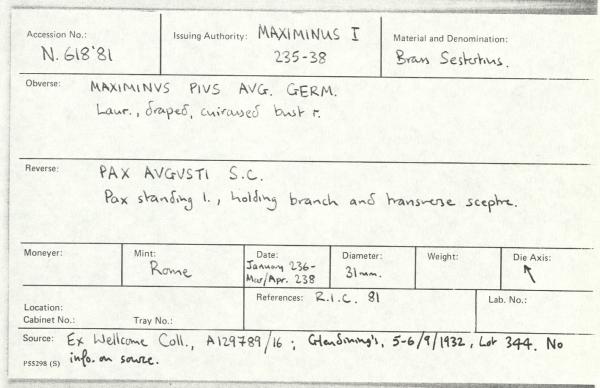 Accession No.: Issuing Authority: MAXIMINUS I Material and Denomination:
N. 618'81 235-38 Brass Sestertius.
Obverse: MAXIMINVS PIVS AVG. GERM.
Laur., draped, cuirassed bust r.
Reverse: PAX AVGVSTI S.C.
Pax standing l., holding branch and transverse sceptre.
Moneyer: Mint: Date: Diameter: Weight: Die Axis:
Rome January 236- 31mm. ↖
Mar/Apr. 238
References: R.I.C. 81 Lab. No.:
Location:
Cabinet No.: Tray No.:
Source: Ex Wellcome Coll., A129789/16; Glendining's, 5-6/9/1932, Lot 344. No
P55298 (S) info. on source.